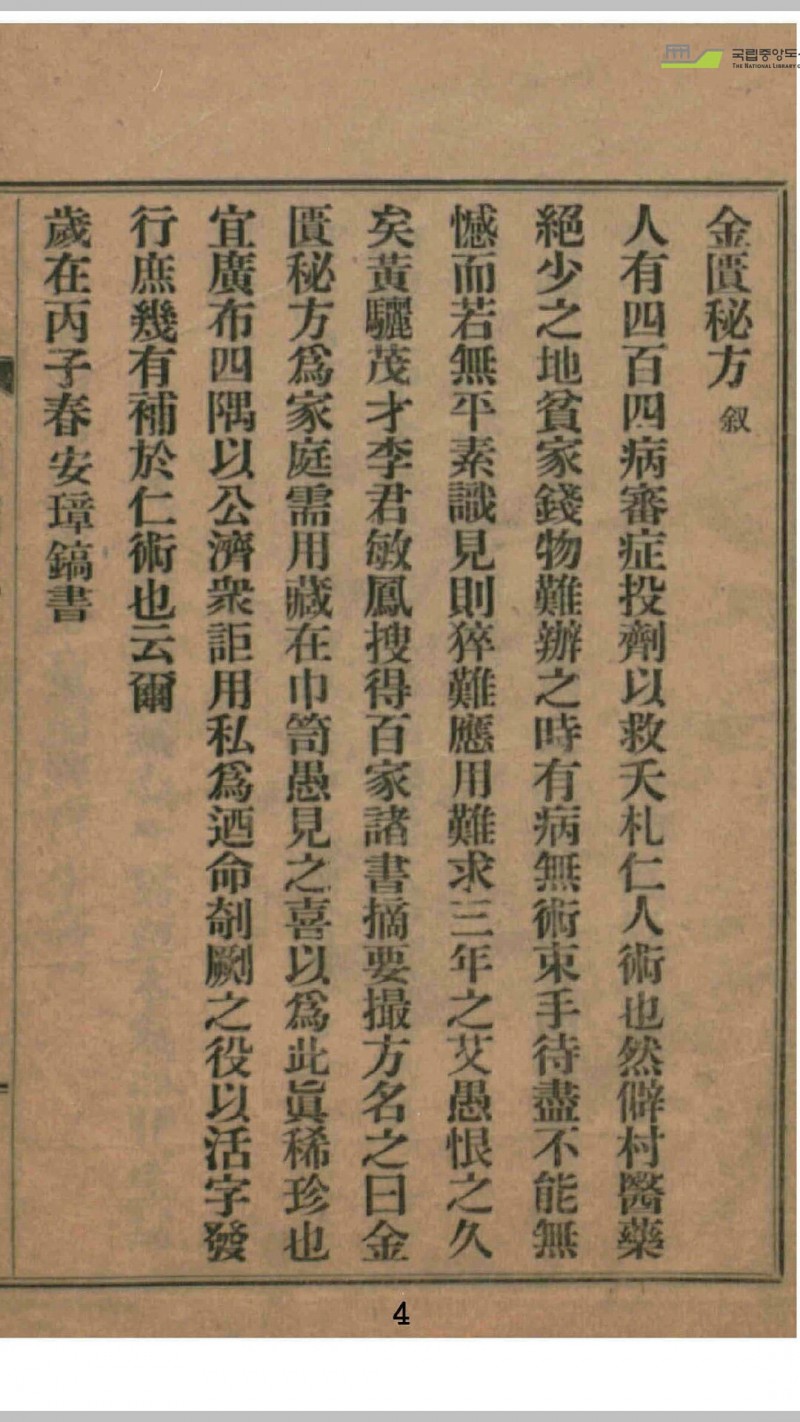 국립중앙도
THE NATIONAL LIBRARY O
金匱秘方 叙
人有四百四病審症投劑以救夭札仁人術也然僻村醫藥
絕少之地貧家錢物難辦之時有病無術束手待盡不能無
憾而若無平素識見則猝難應用難求三年之艾愚恨之久
矣黃驪茂才李君敏鳳搜得百家諸書摘要撮方名之曰金
匱秘方爲家庭需用藏在巾笥愚見之喜以爲此眞稀珍也
宜廣布四隅以公濟衆詎用私爲迺命剞劂之役以活字發
行庶幾有補於仁術也云爾
歲在丙子春安璋鎬書
4